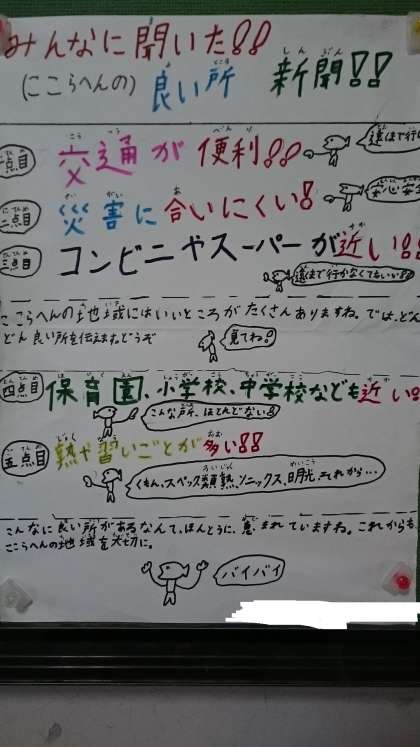 みんなに聞いた!!
(ここらへんの) 良い所 新聞!!
点目 交通が便利!!
遠くまで行
二点目 災害に合いにくい!
安心安
三点目 コンビニやスーパーが近い!
遠くまで行かなくてもいい!
ここらへんの地域にはいいところがたくさんありますね。では、どん
どん良い所を伝えます。どうぞ
見てね!
四点目 保育園、小学校、中学校なども近い!
こんな所、ほとんどない!
五点目 熟や習いごとが多い!!
くもん、スペック類熟、ソニックス、明光、それから…
こんなに良い所があるなんて、ほんとうに、恵まれていますね。これからも、
ここらへんの地域を大切に。
バイバイ